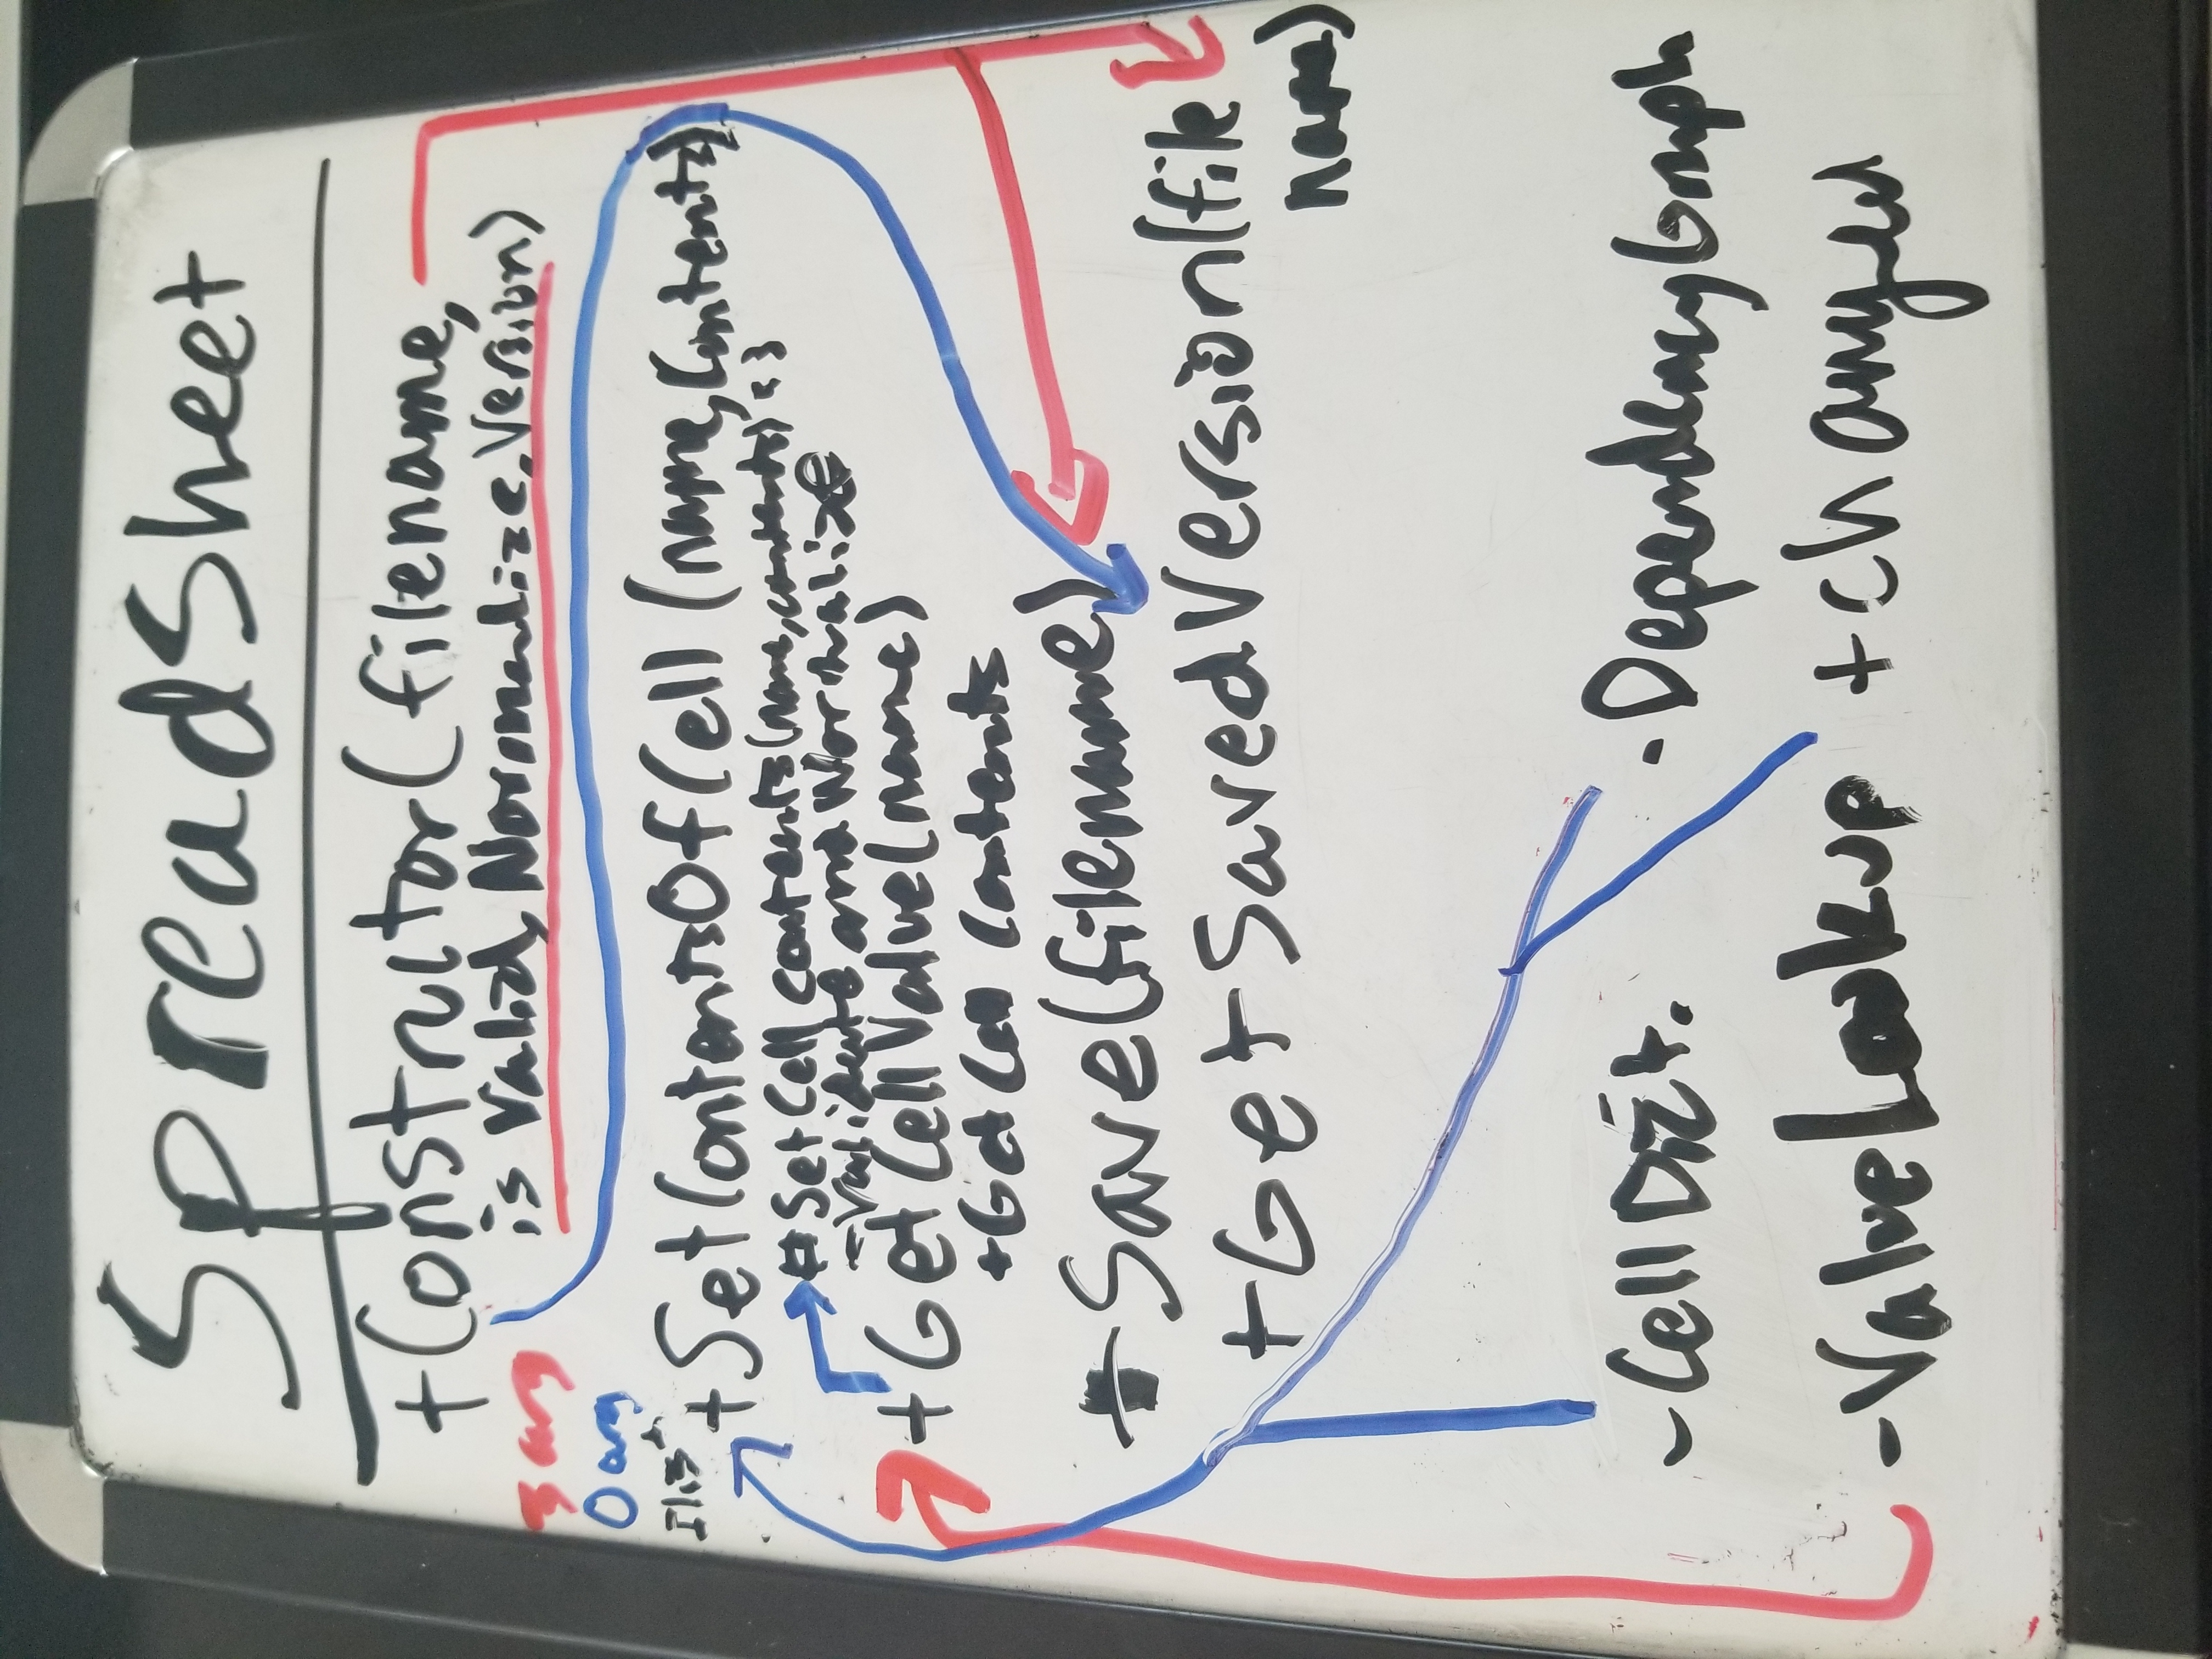 SpreadSheet
+Constructor(filename,
is Valid, Normalize, Version)
3 arg
0 arg
IList
+SetContentsOfCell (name, Contents)
#Set Cell contents(name, contents) x3
-Validate and Normalize
+GetCellValue(name)
+Get Cell Contents
+Save(filename)
+GetSavedVersion(file
name)
-CellDict.
-DependencyGraph
-ValueLookup
+changed